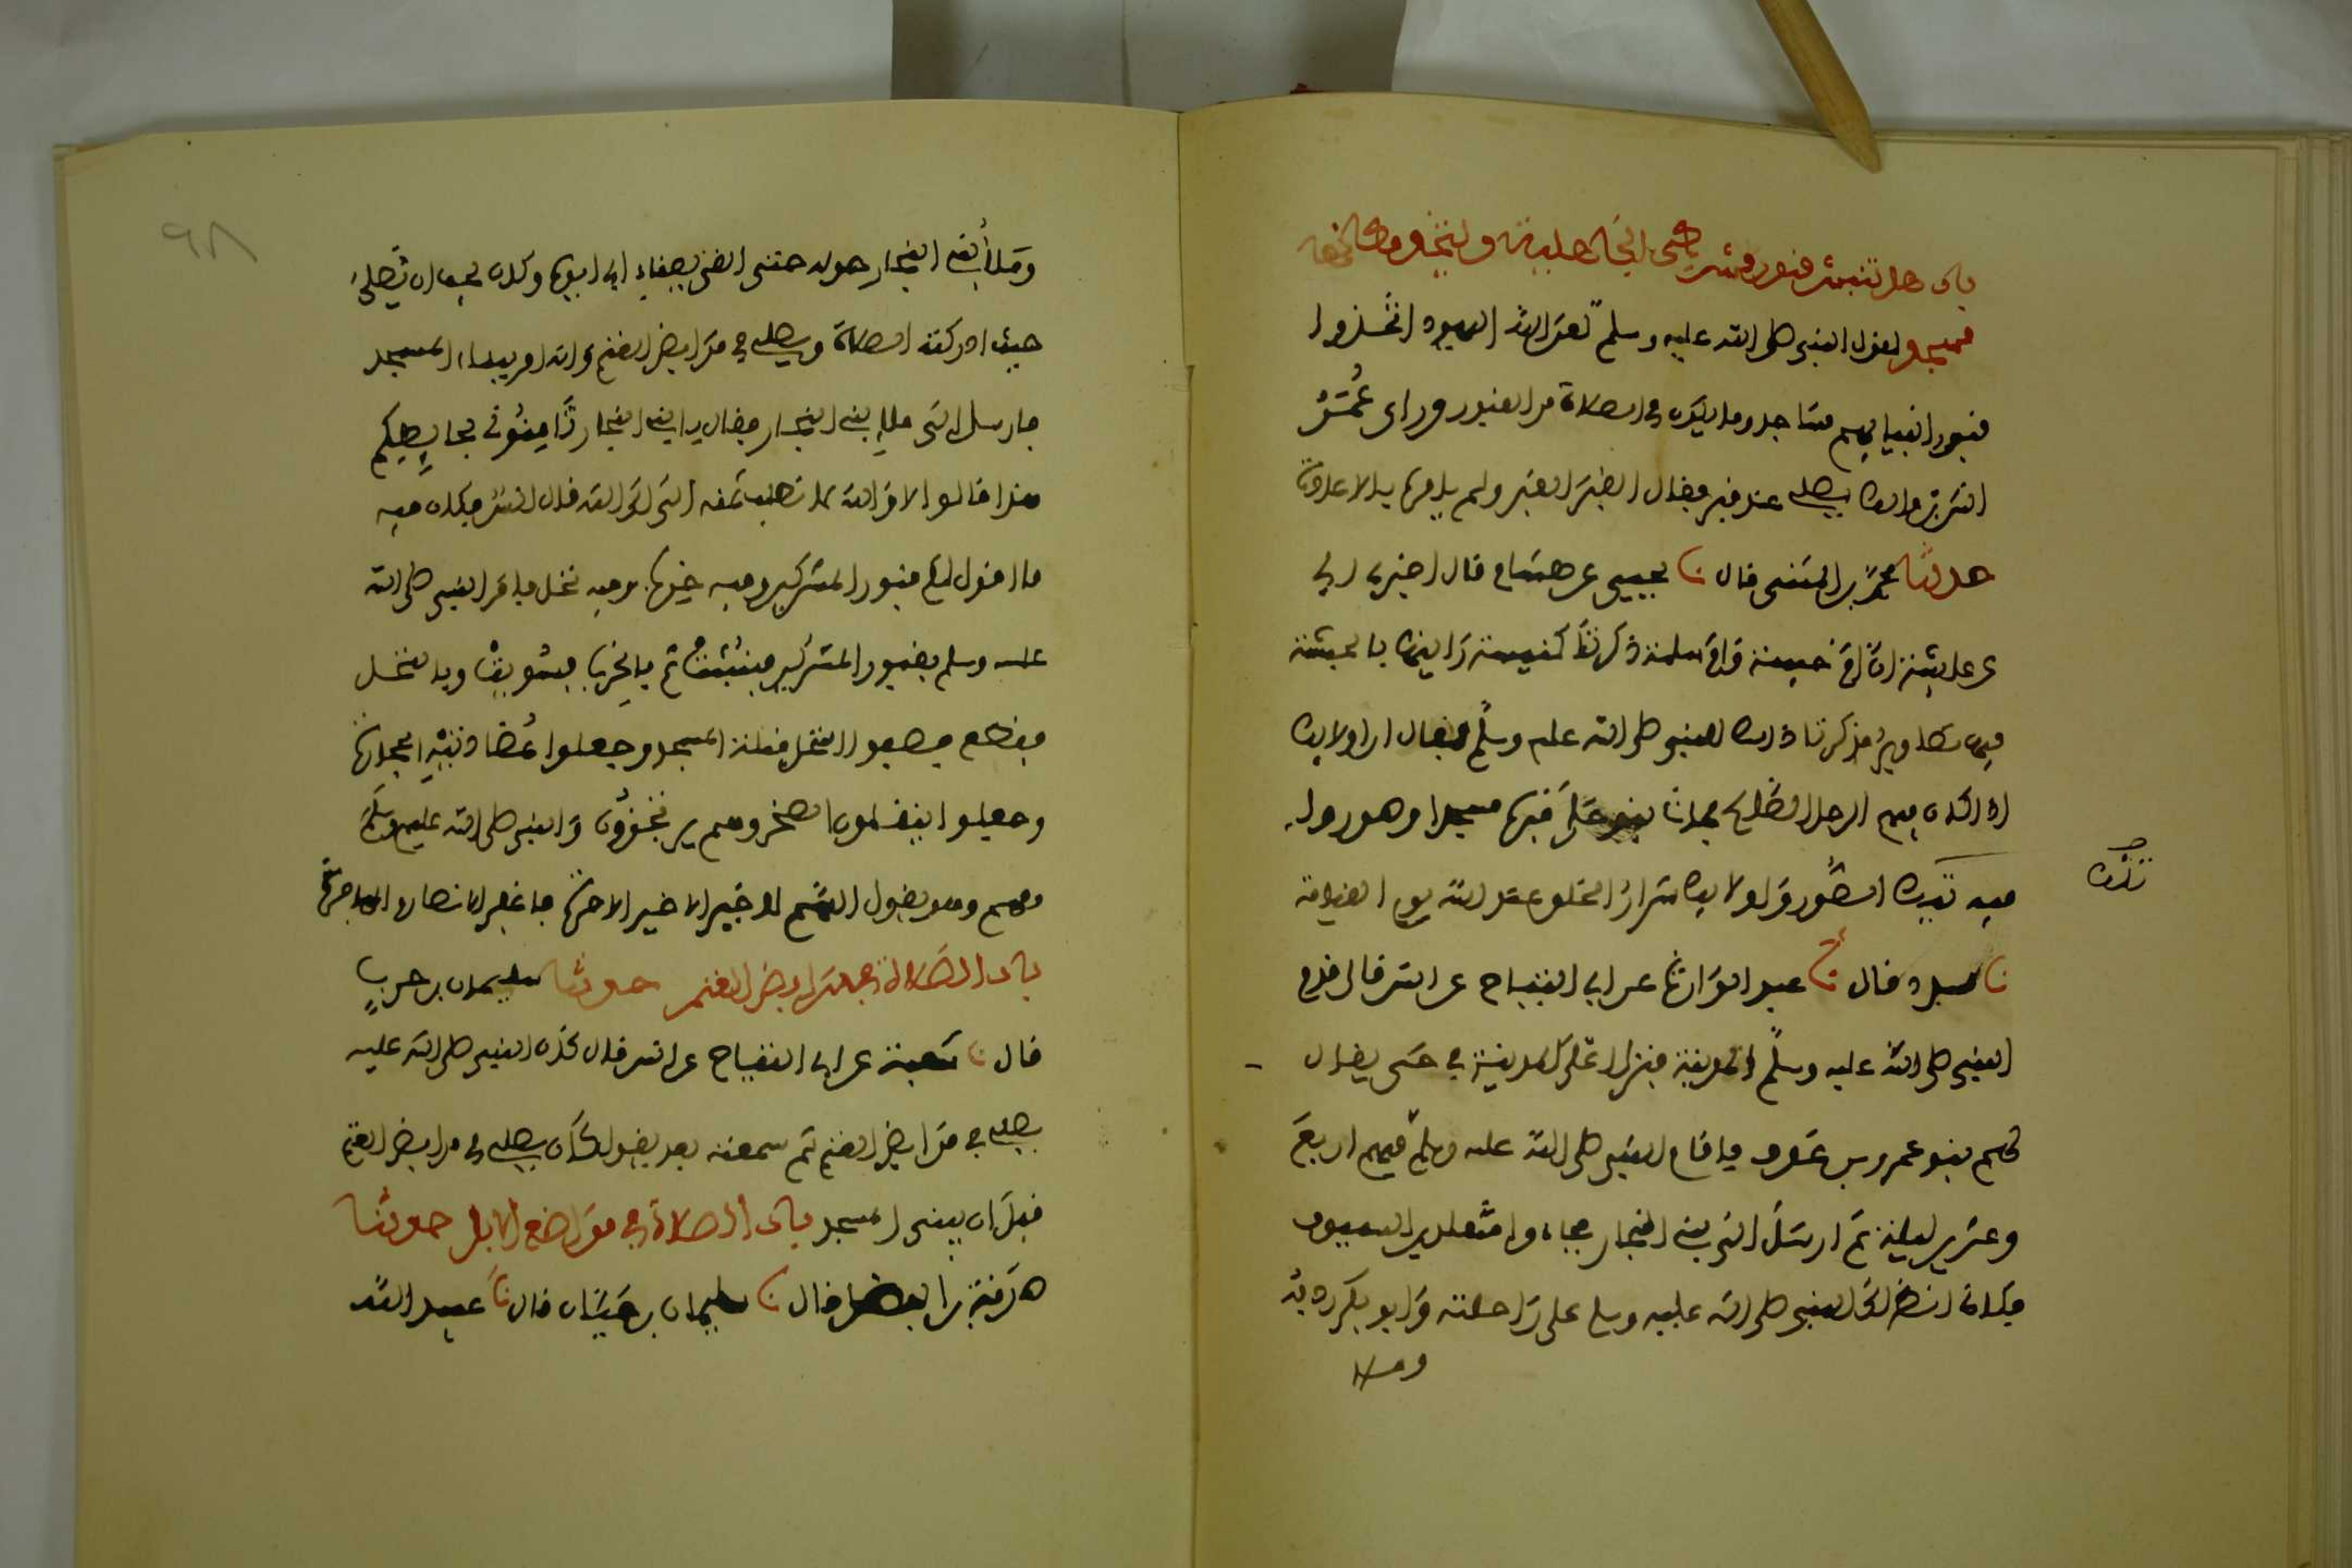 باب هل تنبش قبور مشركي الجاهلية ويتخذ مكانها
مسجد لقول النبي صلى الله عليه وسلم لعن الله اليهود اتخذوا
قبور انبيايهم مساجد وما يكره في الصلاة من القبور وراى عُمَرُ
انس بن مالك يصلي عند قبر فقال القبر القبر ولم يامره بالاعادة
حدثنا محمد بن المثنى قال نا يحيى عن هشام قال اخبرني ابي
عن عايشة ان ام حبيبة وام سلمة ذكرتا كنيسة راينها بالحبشة
فيها تصاوير فذكرتا ذلك للنبي صلى الله عليه وسلم فقال ان اولايك
اذا كان فيهم الرجل الصالح فمات بنوا على قبره مسجدا وصوروا
فيه تيك الصُّور واولايك شرار الخلق عند الله يوم القيامة
تلك
نا مسدد قال نا عبد الوارث عن ابي التياح عن انس قال قدم
النبي صلى الله عليه وسلم المدينة فنزل اعلى المدينة في حي يقال
لهم بنو عمرو بن عوف فاقام النبي صلى الله عليه وسلم فيهم اربع
وعشرين ليلة ثم ارسل الى بني النجار فجاءوا متقلدين السيوف
فكاني انظر الى النبي صلى الله عليه وسلم على راحلته وابو بكر ردفه
وملا
وملأ بني النجار حوله حتى القى بفناء ابي ايوب وكان يحب ان يُصلي
حيث ادركته الصلاة ويصلي في مرابض الغنم وانه امر ببناء المسجد
فارسل الى ملإ بني النجار فقال يا بني النجار ثامنوني بحايطكم
هذا قالوا لا والله لا نطلب ثمنه الا الى الله قال انس فكان فيه
ما اقول لكم قبور المشركين وفيه خرب وفيه نخل فامر النبي صلى الله
عليه وسلم بقبور المشركين فنُبشت ثم بالخرب فسُويت وبالنخل
فقطع فصفوا النخل قبلة المسجد وجعلوا عُضادتيه الحجارة
وجعلوا ينقلون الصخر وهم يرتجزون والنبي صلى الله عليه وسلم
معهم وهو يقول اللهم لا خير الا خير الاخرة فاغفر للانصار والمهاجرة
باب الصلاة في مرابض الغنم حدثنا سليمان بن حربٍ
قال نا شعبة عن ابي التياح عن انس قال كان النبي صلى الله عليه
يصلي في مرابض الغنم ثم سمعته بعد يقول كان يصلي في مرابض الغنم
قبل ان يبنى المسجد باب الصلاة في مواضع الابل حدثنا
صدقة بن الفضل قال نا سليمان بن حيان قال نا عبيد الله
٩٨